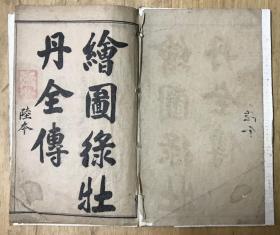 繪圖綠牡
丹全傳
陸本